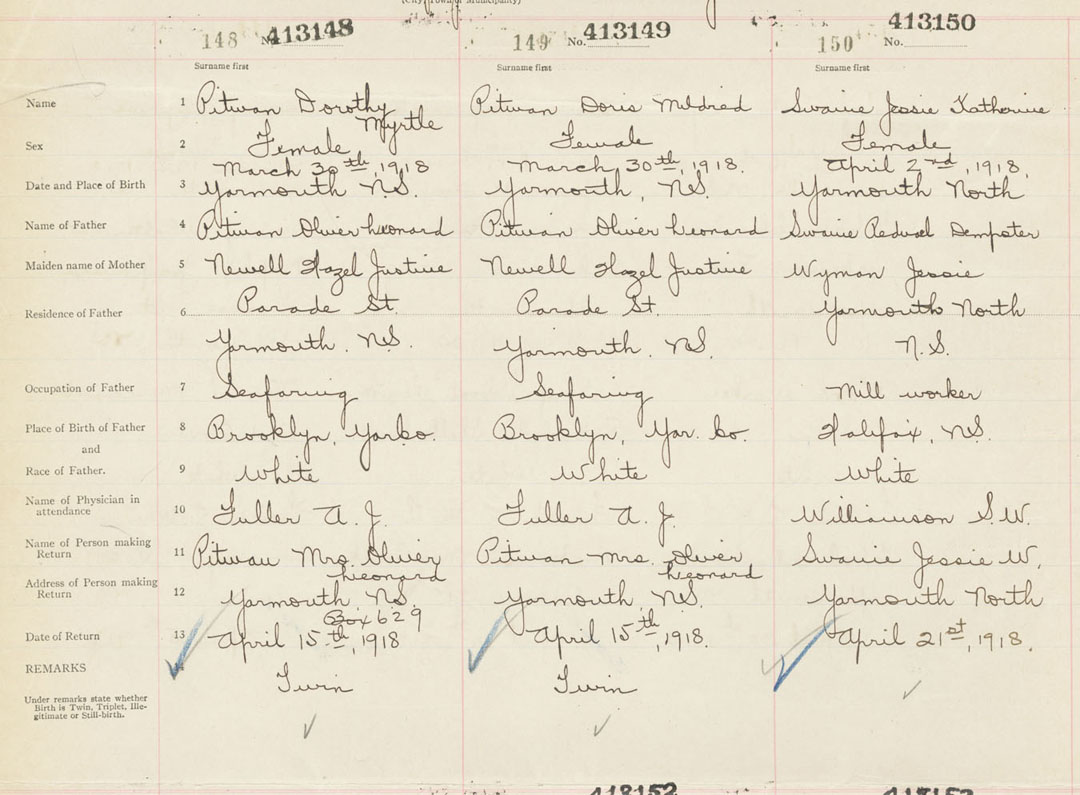 (City, Town or Municipality)
148 No. 413148 149 No. 413149 150 No. 413150
Surname first Surname first Surname first
Name 1 Pitman Dorothy Myrtle Pitman Doris Mildred Swaine Jessie Katherine
Sex 2 Female Female Female
March 30th, 1918 March, 30th, 1918. April 2nd, 1918.
Date and Place of Birth 3 Yarmouth N.S. Yarmouth, N.S. Yarmouth North
Name of Father 4 Pitman Oliver Leonard Pitman Oliver Leonard Swaine Dempster
Maiden name of Mother 5 Newell Hazel Justine Newell Hazel Justine Wyman Jessie
Residence of Father 6 Parade St. Parade St. Yarmouth North
Yarmouth. N.S. Yarmouth. N.S. N.S.
Occupation of Father 7 Seafaring Seafaring Mill worker
Place of Birth of Father 8 Brooklyn, Yar.Co. Brooklyn, Yar. Co. Halifax, N.S.
and
Race of Father. 9 White White White
Name of Physician in attendance 10 Fuller A. J. Fuller A. J. Williamson S.W.
Name of Person making Return 11 Pitman Mrs. Oliver Leonard Pitman Mrs. Oliver Leonard Swaine Jessie W.
Address of Person making Return 12 Yarmouth, N.S. Box 629 Yarmouth, N.S. Yarmouth North
Date of Return 13 April 15th, 1918 April 15th, 1918. April 21st, 1918.
REMARKS 14 Twin Twin
Under remarks state whether
Birth is Twin, Triplet, Ille-
gitimate or Still-birth.